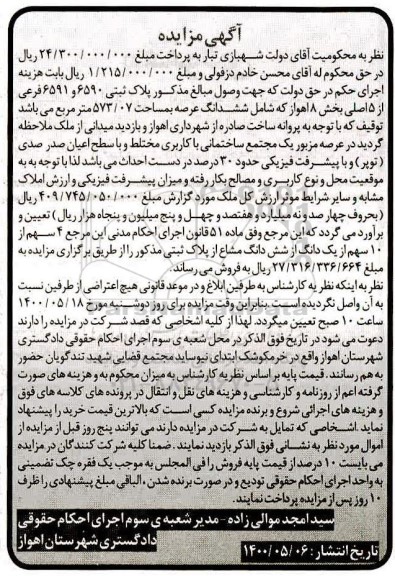 آگهی مزایده
نظر به محکومیت آقای دولت شهبازی تبار به پرداخت مبلغ ۲۴/۳۰۰/۰۰۰/۰۰۰ ریال
در حق محکوم له آقای محسن خادم دزفولی و مبلغ ۱/۲۱۵/۰۰۰/۰۰۰ ریال بابت هزینه
اجرای حکم در حق دولت که جهت وصول مبالغ مذکور پلاک ثبتی ۶۵۹۰ و ۶۵۹۱ فرعی
از ۵ اصلی بخش ۸ اهواز که شامل ششدانگ عرصه بمساحت ۵۷۳/۰۷ متر مربع می باشد
توقیف که با توجه به پروانه ساخت صادره از شهرداری اهواز و بازدید میدانی از ملک ملاحظه
گردید در عرصه مزبور یک مجتمع ساختمانی با کاربری مختلط و با سطح اعیان صدر صدی
(توپر) و با پیشرفت فیزیکی حدود ۳۰ درصد در دست احداث می باشد لذا با توجه به به
موقعیت محل و نوع کاربری و مصالح بکار رفته و میزان پیشرفت فیزیکی و ارزش املاک
مشابه و سایر شرایط موثر ارزش کل ملک مورد گزارش مبلغ ۴۰۹/۷۴۵/۰۵۰/۰۰۰ ریال
(بحروف چهار صد و نه میلیارد و هفتصد و چهل و پنج میلیون و پنجاه هزار ریال) تعیین و
برآورد می گردد که این مرجع وفق ماده ۵۱ قانون اجرای احکام مدنی این مرجع ۴ سهم از
۱۰ سهم از یک دانگ از شش دانگ مشاع از پلاک ثبتی مذکور را از طریق برگزاری مزایده به
مبلغ ۲۷/۳۱۶/۳۳۶/۶۶۴ ریال به فروش می رساند.
نظر به اینکه نظریه کارشناس به طرفین ابلاغ و در موعد قانونی هیچ اعتراضی از طرفین نسبت
به آن واصل نگردیده است. بنابراین وقت مزایده برای روز دوشنبه مورخ ۱۴۰۰/۰۵/۱۸
ساعت ۱۰ صبح تعیین میگردد. لهذا از کلیه اشخاصی که قصد شرکت در مزایده را دارند
دعوت می شود در تاریخ فوق الذکر در محل شعبه ی سوم اجرای احکام حقوقی دادگستری
شهرستان اهواز واقع در خرمکوشک ابتدای نیوساید مجتمع قضایی شهید تندگویان حضور
به هم رسانند. قیمت پایه بر اساس نظریه کارشناس به میزان محکوم به و هزینه های صورت
گرفته اعم از روزنامه و کارشناسی و هزینه های نقل و انتقال در پرونده های کلاسه های فوق
و هزینه های اجرائی شروع و برنده مزایده کسی است که بالاترین قیمت خرید را پیشنهاد
نماید. اشخاصی که تمایل به شرکت در مزایده دارند می توانند پنج روز قبل از مزایده از
اموال مورد نظر به نشانی فوق الذکر بازدید نمایند. ضمنا کلیه شرکت کنندگان در مزایده
می بایست ۱۰ درصد از قیمت پایه فروش را فی المجلس به موجب یک فقره چک تضمینی
به واحد اجرای احکام حقوقی تودیع و در صورت برنده شدن، الباقی مبلغ پیشنهادی را ظرف
۱۰ روز پس از مزایده پرداخت نمایند.
سید امجد موالی زاده - مدیر شعبه ی سوم اجرای احکام حقوقی
دادگستری شهرستان اهواز
تاریخ انتشار: ۱۴۰۰/۰۵/۰۶